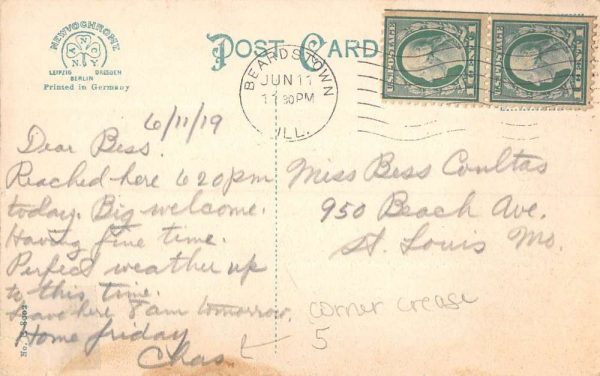 NEWVOCHROME
A N C
N Y
LEIPZIG DRESDEN
BERLIN
Printed in Germany
POST CARD
BEARDSTOWN
JUN 11
11 30 PM
ILL.
U.S. POSTAGE
1 CENT 1
U.S. POSTAGE
1 CENT 1
6/11/19
Dear Bess.
Reached here 6 20 pm
today. Big welcome.
Having fine time.
Perfect weather up
to this time.
Leave here 8 am tomorrow.
Home friday
Chas.
Miss Bess Coultas
950 Beach Ave.
St. Louis Mo.
corner crease
5